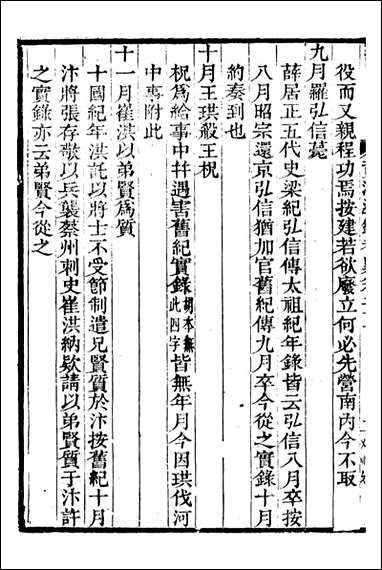 役而又親程功焉按建若欲廢立何必先營南内今不取
九月羅弘信薨
薛居正五代史梁紀弘信傳太祖紀年錄皆云弘信八月卒按
八月昭宗還京弘信猶加官舊紀傳九月卒今從之實錄十月
約奏到也
十月王珙殺王祝
祝爲給事中幷遇害舊紀實錄胡本無此四字皆無年月今因珙伐河
中事附此
十一月崔洪以弟賢爲質
十國紀年洪託以將士不受節制遣兄賢質於汴按舊紀十月
汴將張存敬以兵襲蔡州刺史崔洪納欵請以弟賢質于汴許
之實錄亦云弟賢今從之